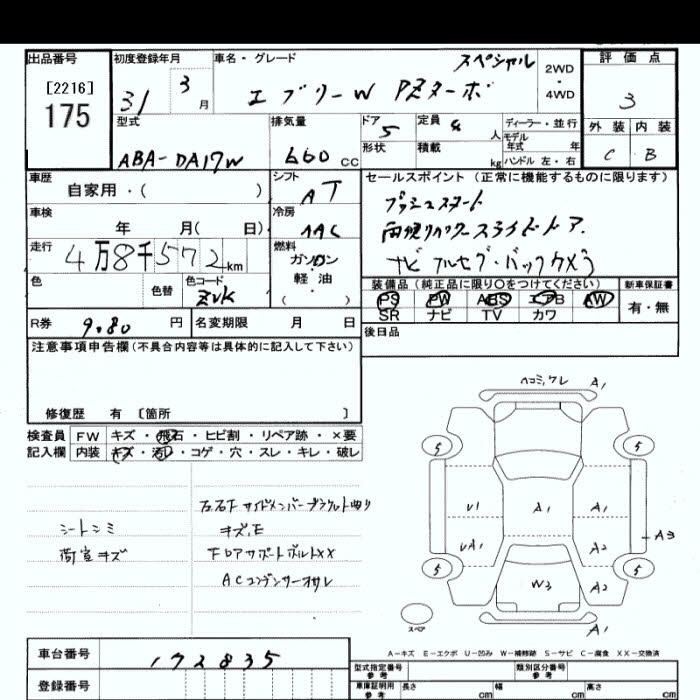 出品番号 初度登録年月 車名・グレード スペシャル 2WD ・ 4WD 評価点
[2216] 175 31 3 月 エブリーW PZターボ 3
型式 排気量 ドア 5 定員 4 人 ディーラー・並行 外装 内装
モデル年式 年
ABA-DA17W 660 cc 形状 積載 kg ハンドル 左・右 C B
車歴 シフト AT セールスポイント(正常に機能するものに限ります)
自家用・( ) プッシュスタート
車検 冷房 AAC
年 月( 日) 両側パワースライドドア.
走行 4万8千572km 燃料 ガソリン・軽油・( ) ナビ フルセグ・バックカメラ
色 色替 色コード ZVK 装備品(純正品に限り○をつけてください) 新車保証書
PS PW ABS エアB AW 有・無
SR ナビ TV カワ
R券 9.80 円 名変期限 月 日 後日品
注意事項申告欄(不具合内容等は具体的に記入して下さい)
修復歴 有 [箇所 ]
検査員記入欄 FW キズ・飛石・ヒビ割・リペア跡・×要
内装 キズ・汚れ・コゲ・穴・スレ・キレ・破レ
シートシミ
荷室キズ
左右下サイドメンバーブラケット曲り
キズ,E
FロアサポートボルトXX
ACコンデンサーオサレ
ヘコミ,ワレ A1
5 5
U1 A1 A1
A3
UA1 A2
5 5
W3 A2
スペア
A1
A-キズ E-エクボ U-凹み W-補修跡 S-サビ C-腐食 XX-交換済
車台番号 172835
登録番号
型式指定番号 参考 類別区分番号 参考
車庫証明用 参考 長さ cm 幅 cm 高さ cm